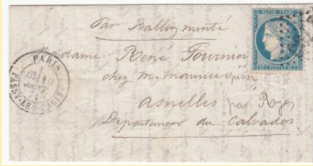 Par Ballon monté
Madame René Fournier
chez M. Maurice
Asnelles (par Ryes)
Département du Calvados
PARIS